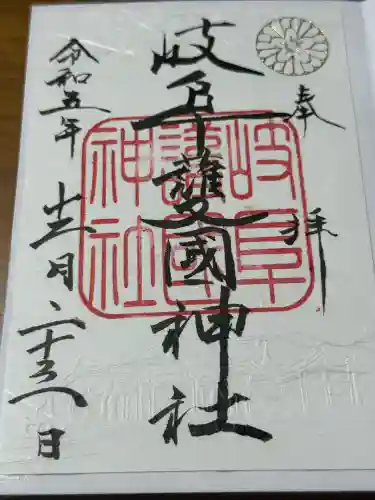 奉拝
岐阜護國神社
岐阜護國神社
令和五年
十二月
二十日